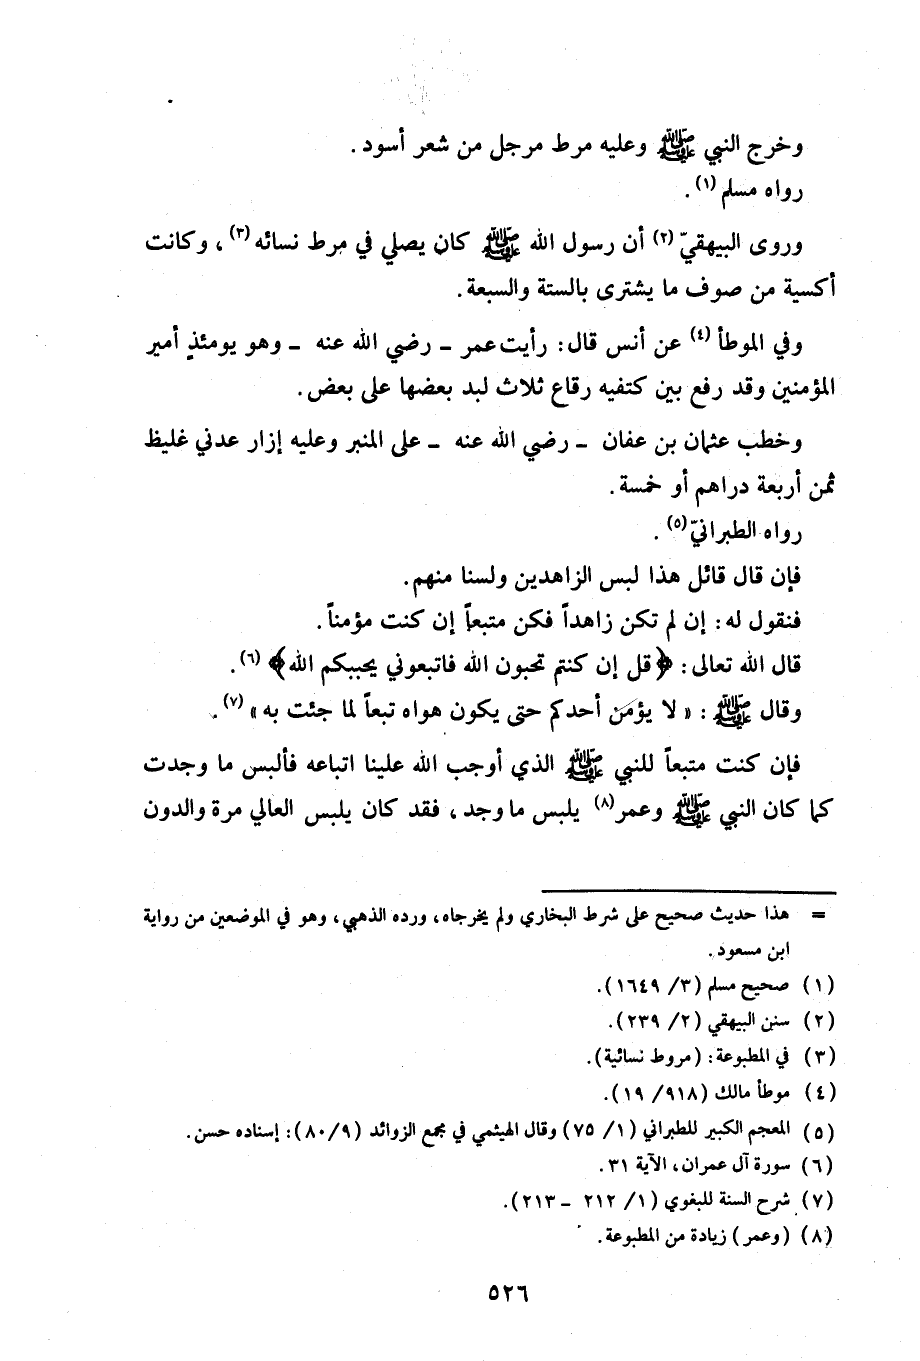 وخرج النبي ﷺ وعليه مرط مرجل من شعر أسود.
رواه مسلم (١).
وروى البيهقيّ (٢) أن رسول الله ﷺ كان يصلي في مرط نسائه (٣)، وكانت
أكسية من صوف ما يشترى بالستة والسبعة.
وفي الموطأ (٤) عن أنس قال: رأيت عمر ـ رضي الله عنه ـ وهو يومئذٍ أمير
المؤمنين وقد رفع بين كتفيه رقاع ثلاث لبد بعضها على بعض.
وخطب عثمان بن عفان ـ رضي الله عنه ـ على المنبر وعليه إزار عدني غليظ
ثمن أربعة دراهم أو خمسة.
رواه الطبرانيّ (٥).
فإن قال قائل هذا لبس الزاهدين ولسنا منهم.
فنقول له: إن لم تكن زاهداً فكن متبعاً إن كنت مؤمناً.
قال الله تعالى: ﴿قل إن كنتم تحبون الله فاتبعوني يحببكم الله﴾ (٦).
وقال ﷺ: «لا يؤمن أحدكم حتى يكون هواه تبعاً لما جئت به» (٧).
فإن كنت متبعاً للنبي ﷺ الذي أوجب الله علينا اتباعه فألبس ما وجدت
كما كان النبي ﷺ وعمر (٨) يلبس ما وجد، فقد كان يلبس العالي مرة والدون
= هذا حديث صحيح على شرط البخاري ولم يخرجاه، ورده الذهبي، وهو في الموضعين من رواية
ابن مسعود.
(١) صحيح مسلم (٣/ ١٦٤٩).
(٢) سنن البيهقي (٢/ ٢٣٩).
(٣) في المطبوعة: (مروط نسائية).
(٤) موطأ مالك (٩١٨/ ١٩).
(٥) المعجم الكبير للطبراني (١/ ٧٥) وقال الهيثمي في مجمع الزوائد (٩/ ٨٠): إسناده حسن.
(٦) سورة آل عمران، الآية ٣١.
(٧) شرح السنة للبغوي (١/ ٢١٢ ـ ٢١٣).
(٨) (وعمر) زيادة من المطبوعة.
٥٢٦